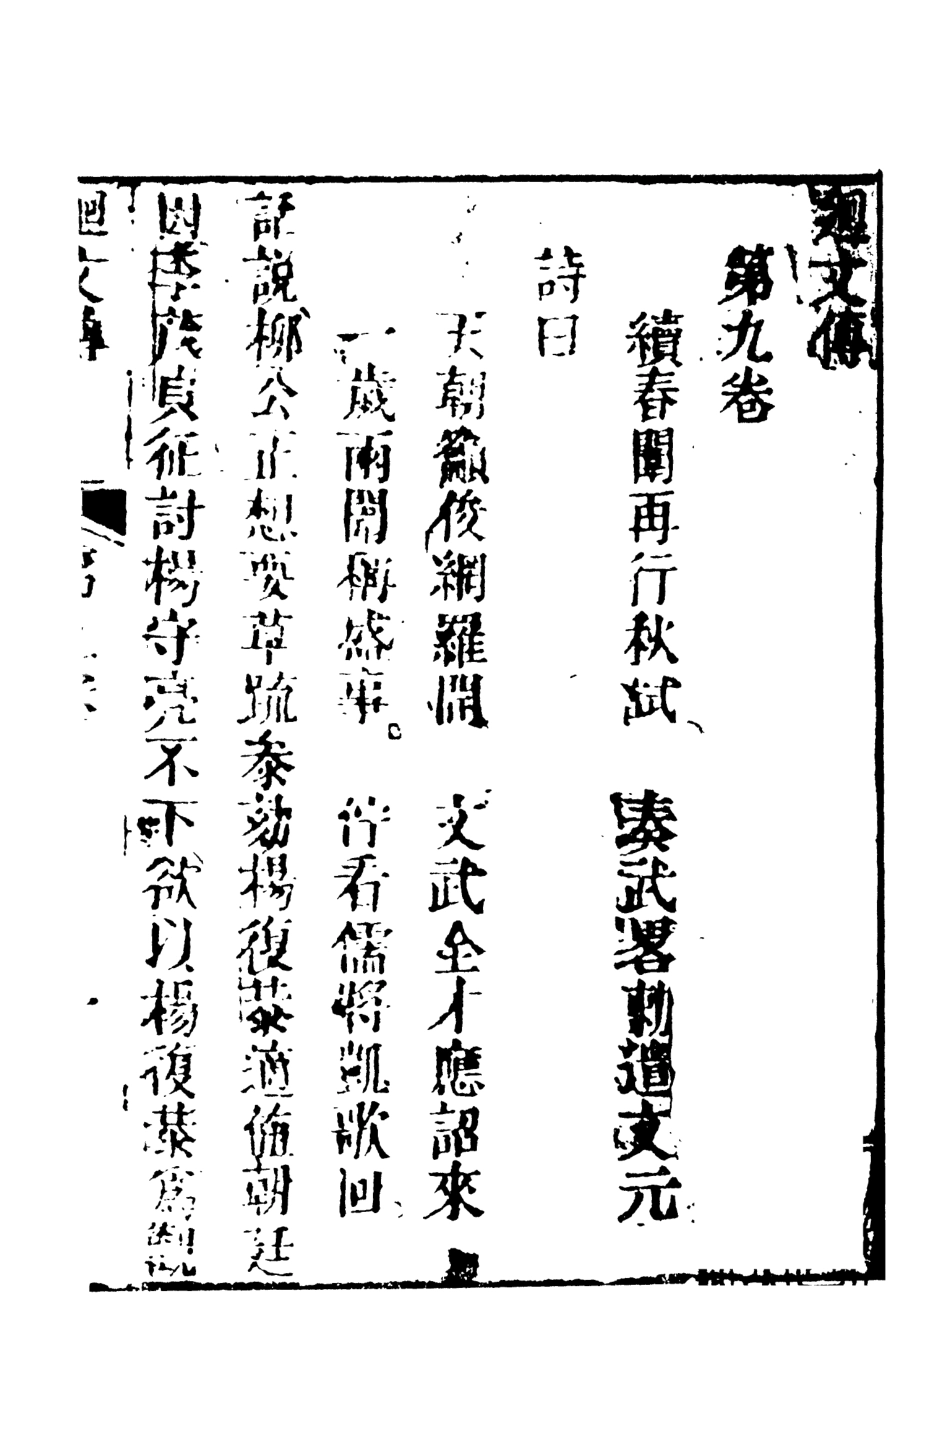 廻文傳
第九卷
續春闈再行秋試　奏武畧勅遣文元
詩曰
天朝籲俊網羅開　文武全才應詔來
一歲兩開稱盛事　佇看儒將凱歌回
話說柳公正想要草疏叅劾楊復恭適値朝廷
因李茂貞征討楊守亮不下欲以楊復恭爲觀
廻文傳